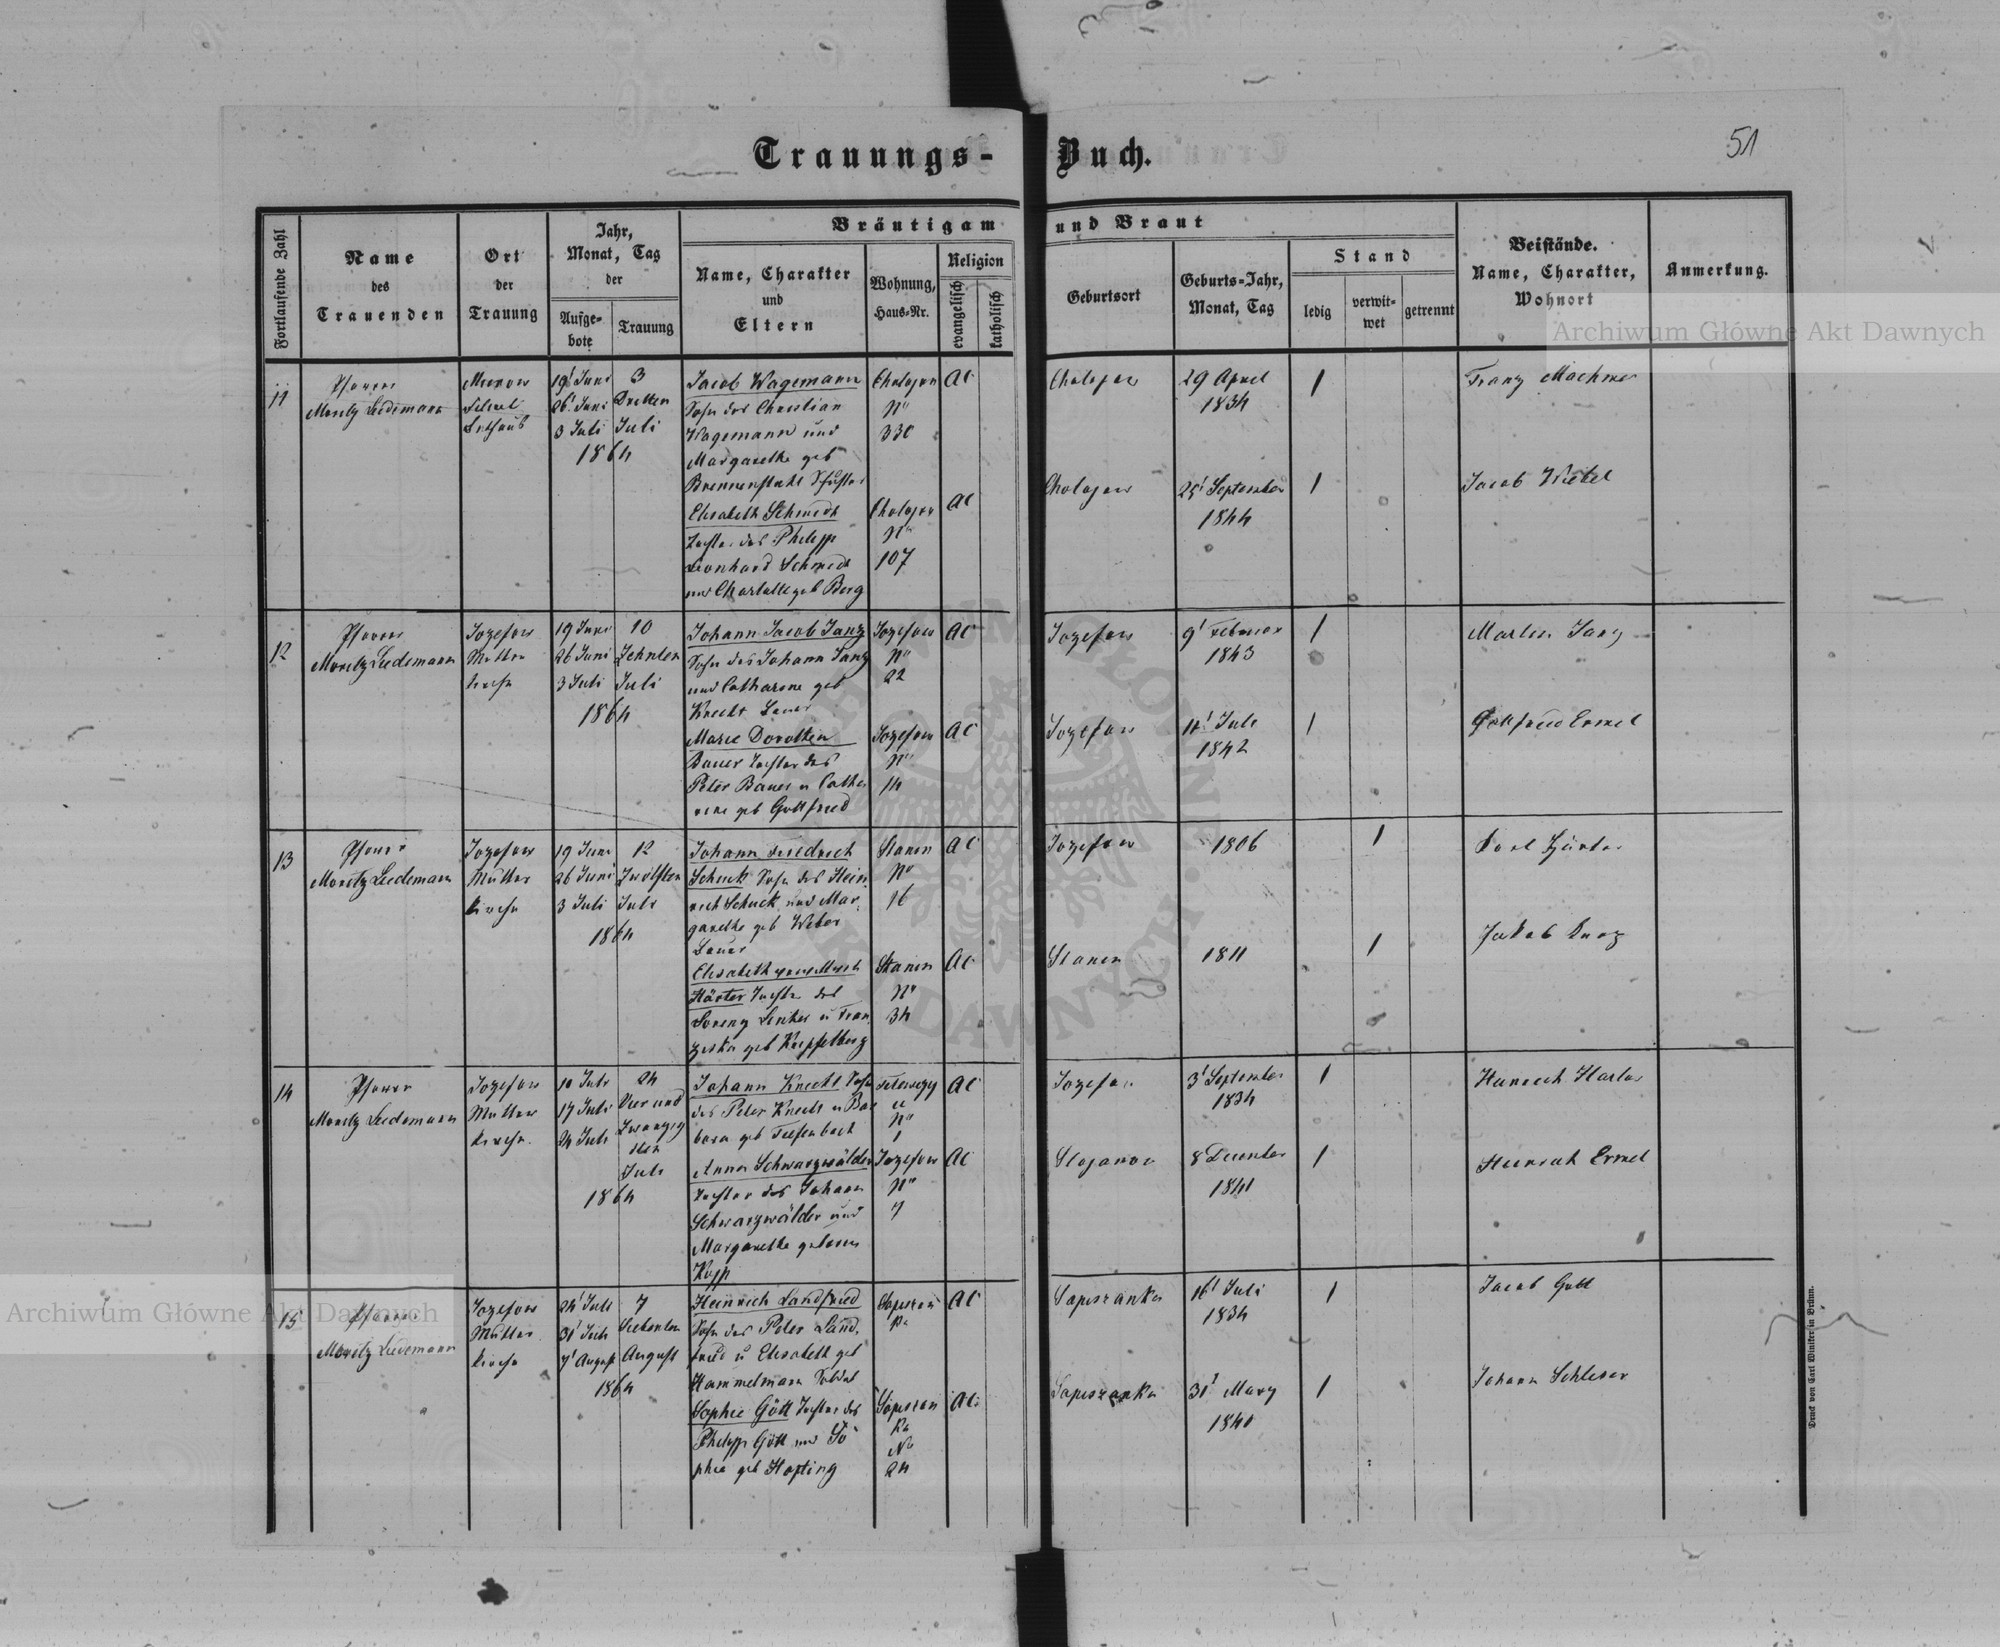 Trauungs-Buch.
51
Fortlaufende Zahl
Name
des
Trauenden
Ort
der
Trauung
Jahr,
Monat, Tag
der
Aufge-
bote
Trauung
Bräutigam und Braut
Name, Charakter
und
Eltern
Wohnung,
Haus-Nr.
Religion
evangelisch
katholisch
Geburtsort
Geburts-Jahr,
Monat, Tag
Stand
ledig
verwit-
wet
getrennt
Beistände.
Name, Charakter,
Wohnort
Anmerkung.
Archiwum Główne Akt Dawnych
11
Pfarrer
Moritz Liedemann
19' Juni
26' Juni
3 Juli
3
Dritten
Juli
1864
Jacob Wagemann
Sohn des Christian
Wagemann und
Margarethe geb
Chologow
No
330
AC
29 April
1834
1
Franz
Elisabeth Schmidt
Tochter des Philipp
Leonhard Schmidt
und Charlotte geb Berg
No
107
AC
25' September
1844
1
Jacob
12
Pfarrer
Moritz Liedemann
Jozefow
Mutter
kirche
19 Juni
26 Juni
3 Juli
10
Zehnten
Juli
1864
Johann Jacob Janz
Sohn des Johann Janz
und Catharine geb
Knecht Bauer
Jozefow
No
22
AC
Jozefow
9' Februar
1843
1
Martin Janz
Marie Dorothea
Bauer Tochter des
Peter Bauer u Catha
rine geb Gottfried
Jozefow
No
14
AC
Jozefow
Juli
1842
1
Gottfried Ermel
13
Pfarrer
Moritz Liedemann
Jozefow
Mutter
kirche
19 Juni
26 Juni
3 Juli
12
Zwölften
Juli
1864
Johann Friedrich
Schuck Sohn des Hein
rich Schuck und Mar
garethe geb Weber
Bauer
Stanin
No
16
AC
Jozefow
1806
1
Elisabeth
Härter Tochter des
Lorenz u Fran
ziska geb
Stanin
No
34
AC
Stanin
1811
1
Jakob
14
Pfarrer
Moritz Liedemann
Jozefow
Mutter
kirche
10 Juli
17 Juli
24 Juli
24
Vier und
Zwanzig
sten
Juli
1864
Johann Knecht Sohn
des Peter Knecht u Bar
bara geb Tiefenbach
No
1
AC
Jozefow
3' September
1834
1
Anna Schwarzwälder
Tochter des Johann
Schwarzwälder und
Margarethe geborne
Kopp
Jozefow
No
7
AC
Stojanow
8 December
1841
1
Heinrich Ermel
15
Pfarrer
Moritz Liedemann
Jozefow
Mutter
kirche
24' Juli
31' Juli
7' August
7
Siebenten
August
1864
Heinrich Landfried
Sohn des Peter Land
fried u Elisabeth geb
Hammelmann Soldat
AC
Sapiezanka
16' Juli
1834
1
Jacob Gött
Sophie Gött Tochter des
Philipp Gött und So
phia geb Hopfing
No
24
AC
Sapiezanka
31' März
1840
1
Johann Schleser
Archiwum Główne Akt Dawnych
Druck von Carl Winiker in Brünn.